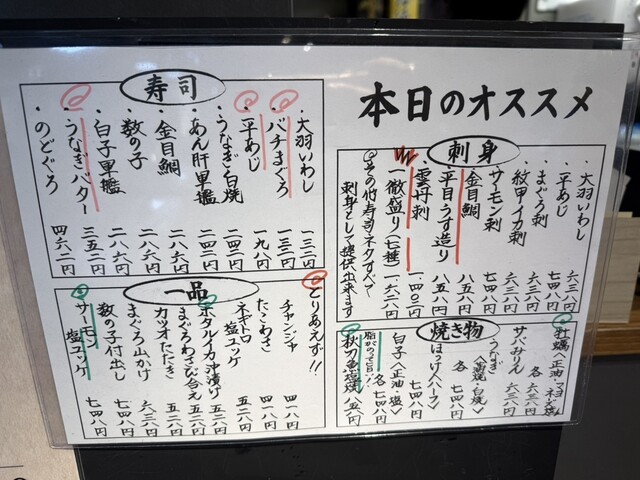 本日のオススメ
刺身
・大羽いわし 六三八円
・平あじ 七四八円
・まぐろ刺 六三八円
・紋甲イカ刺 六三八円
・サーモン刺 七四八円
・金目鯛 八五八円
・平目うす造り 八五八円
・雲丹刺
・一徹盛り(七種) 一、六二八円
◎その他寿司ネタすべて
刺身として提供出来ます
寿司
・大羽いわし 一三二円
・バチまぐろ 一三二円
・平あじ 一九八円
・うなぎ白焼 二四二円
・あん肝軍艦 二四二円
・金目鯛 二八六円
・数の子 二八六円
・白子軍艦 二八六円
・うなぎバター 三五二円
・のどぐろ 四六二円
焼き物
牡蠣<正油・マヨネーズ焼> 各六三八円
サバみりん 六三八円
うなぎ<蒲焼・白焼> 各七四八円
ほっけ(ハーフ) 七四八円
白子<正油・塩> 各七四八円
脂がのってる!!
秋刀魚塩焼 八五八円
一品
とりあえず!!
チャンジャ 四一八円
たこわさ 四一八円
ネギトロ
塩ユッケ 五二八円
ホタルイカ沖漬け 五二八円
まぐろわさび和え 五二八円
カツオたたき 六三八円
まぐろ山かけ 六三八円
数の子付出し 七四八円
サーモン
塩ユッケ 七四八円